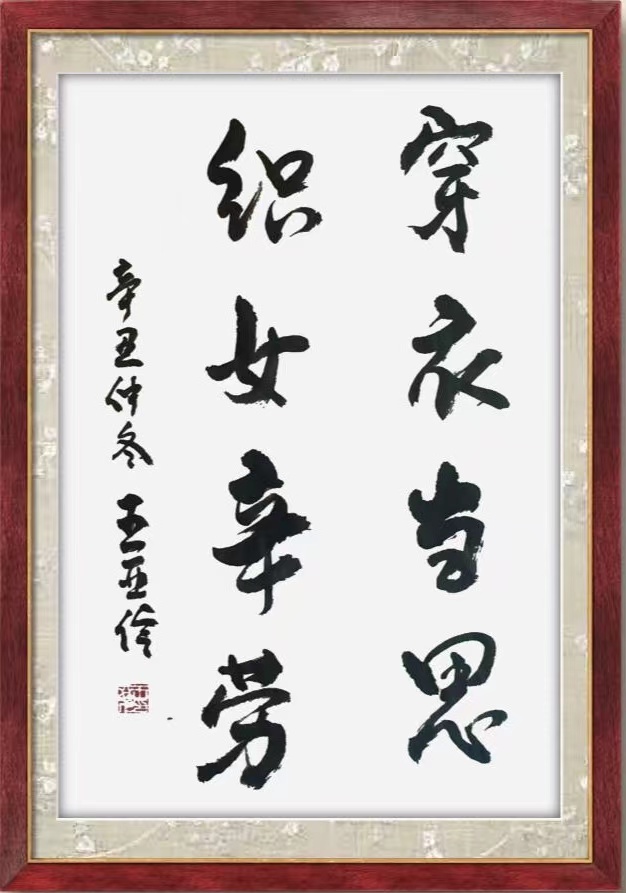 穿衣当思
织女辛劳
辛丑仲冬 王亚伦